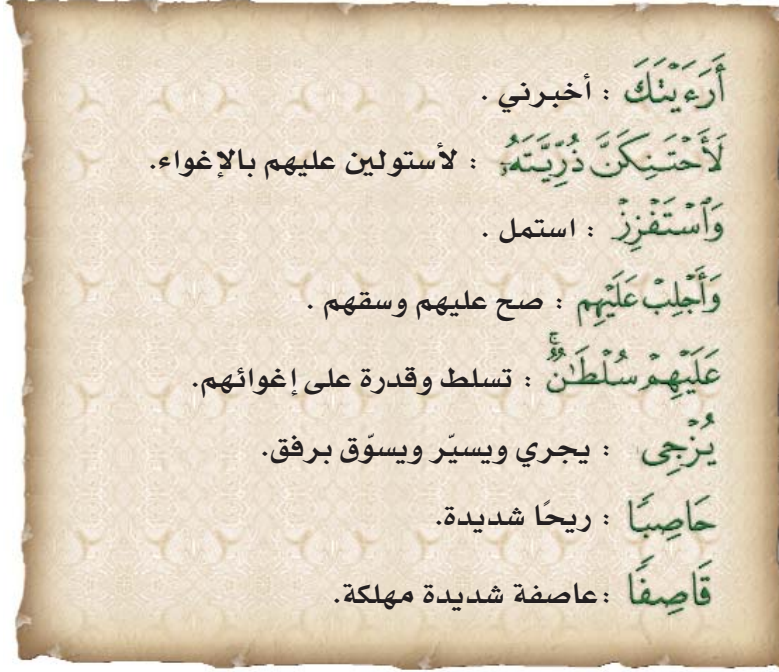 أَرَءَيْتَكَ : أخبرني .
لَأَحْتَنِكَنَّ ذُرِّيَّتَهُۥٓ : لأستولين عليهم بالإغواء.
وَٱسْتَفْزِزْ : استمل .
وَأَجْلِبْ عَلَيْهِم : صح عليهم وسقهم .
عَلَيْهِمْ سُلْطَٰنٌۚ : تسلط وقدرة على إغوائهم.
يُزْجِى : يجري ويسيّر ويسوّق برفق.
حَاصِبًا : ريحًا شديدة.
قَاصِفًا : عاصفة شديدة مهلكة.